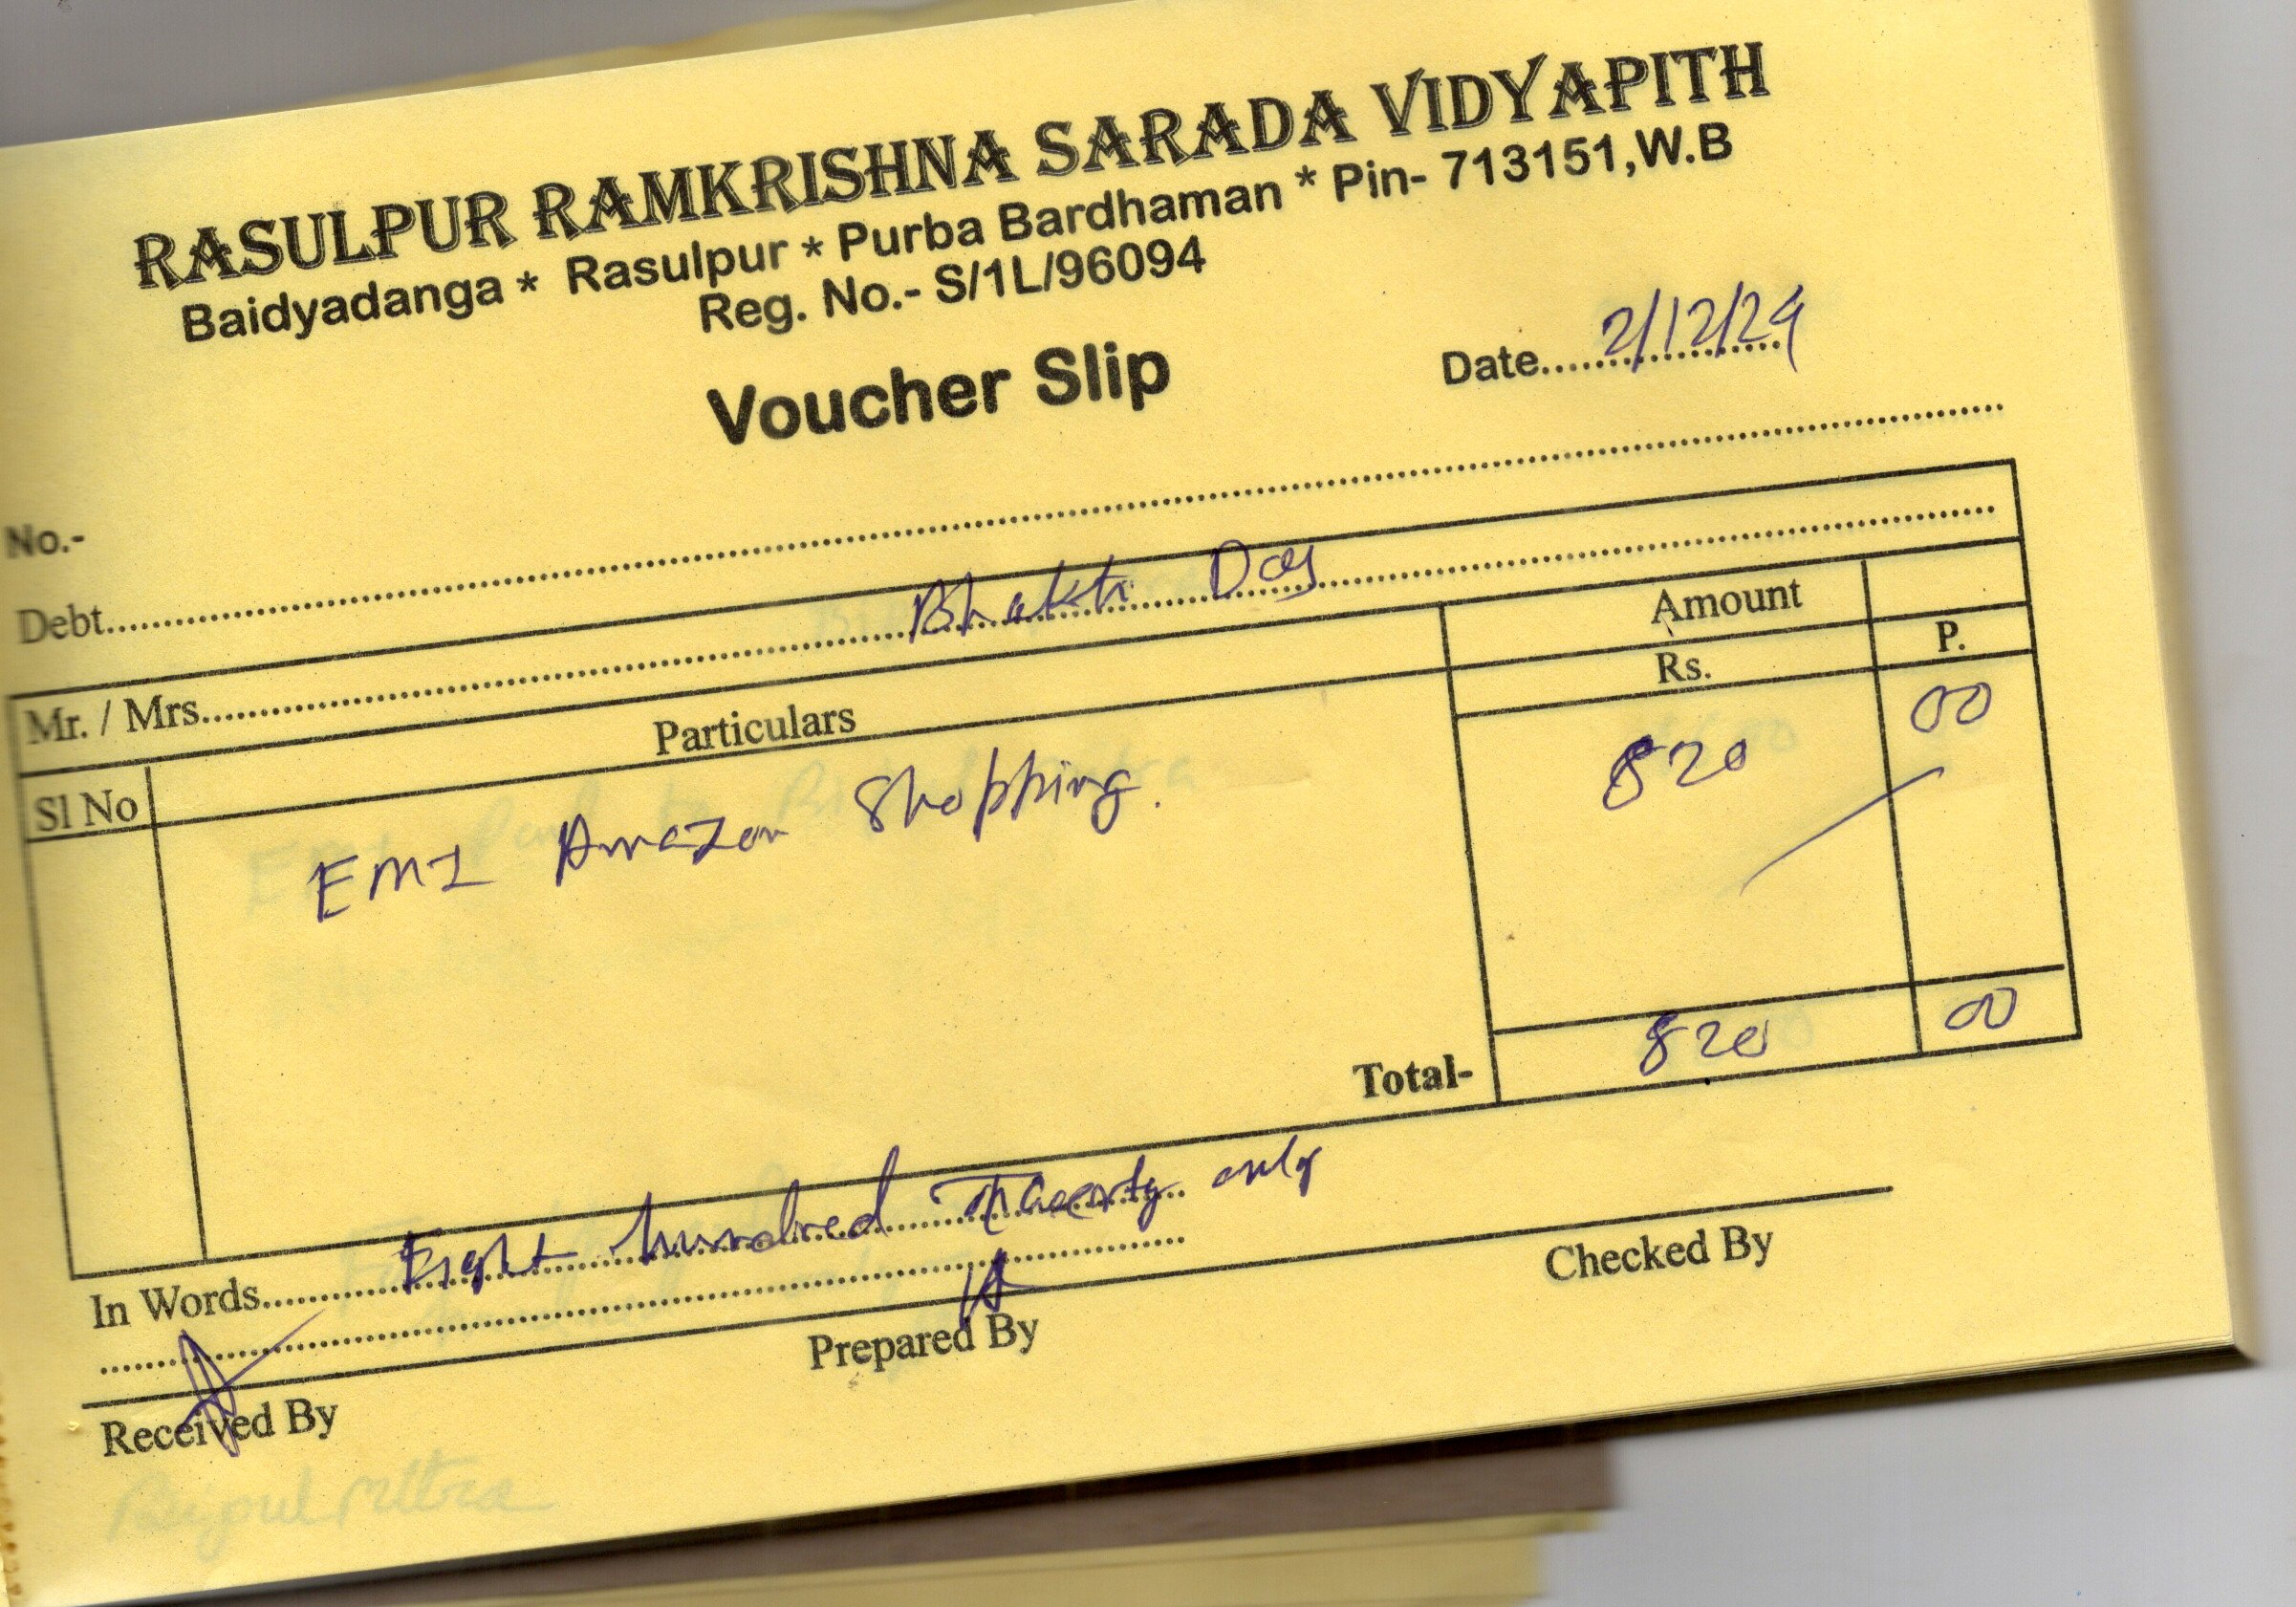 RASULPUR RAMKRISHNA SARADA VIDYAPITH
Baidyadanga * Rasulpur * Purba Bardhaman * Pin- 713151,W.B
Reg. No.- S/1L/96094
Voucher Slip
Date 2/12/24
No.-
Debt
Mr. / Mrs. Bhakti Das
Sl No Particulars Amount
Rs. P.
EMI Amazon Shopping. 820 00
Total- 820 00
In Words Eight hundred Twenty only
Received By Prepared By Checked By